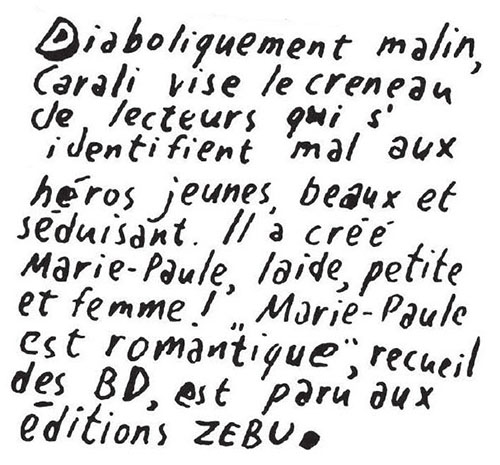 Diaboliquement malin,
Carali vise le creneau
de lecteurs qui s'
identifient mal aux
héros jeunes, beaux et
séduisant. Il a créé
Marie-Paule, laide, petite
et femme! "Marie-Paule
est romantique", recueil
des BD, est paru aux
éditions ZEBU.